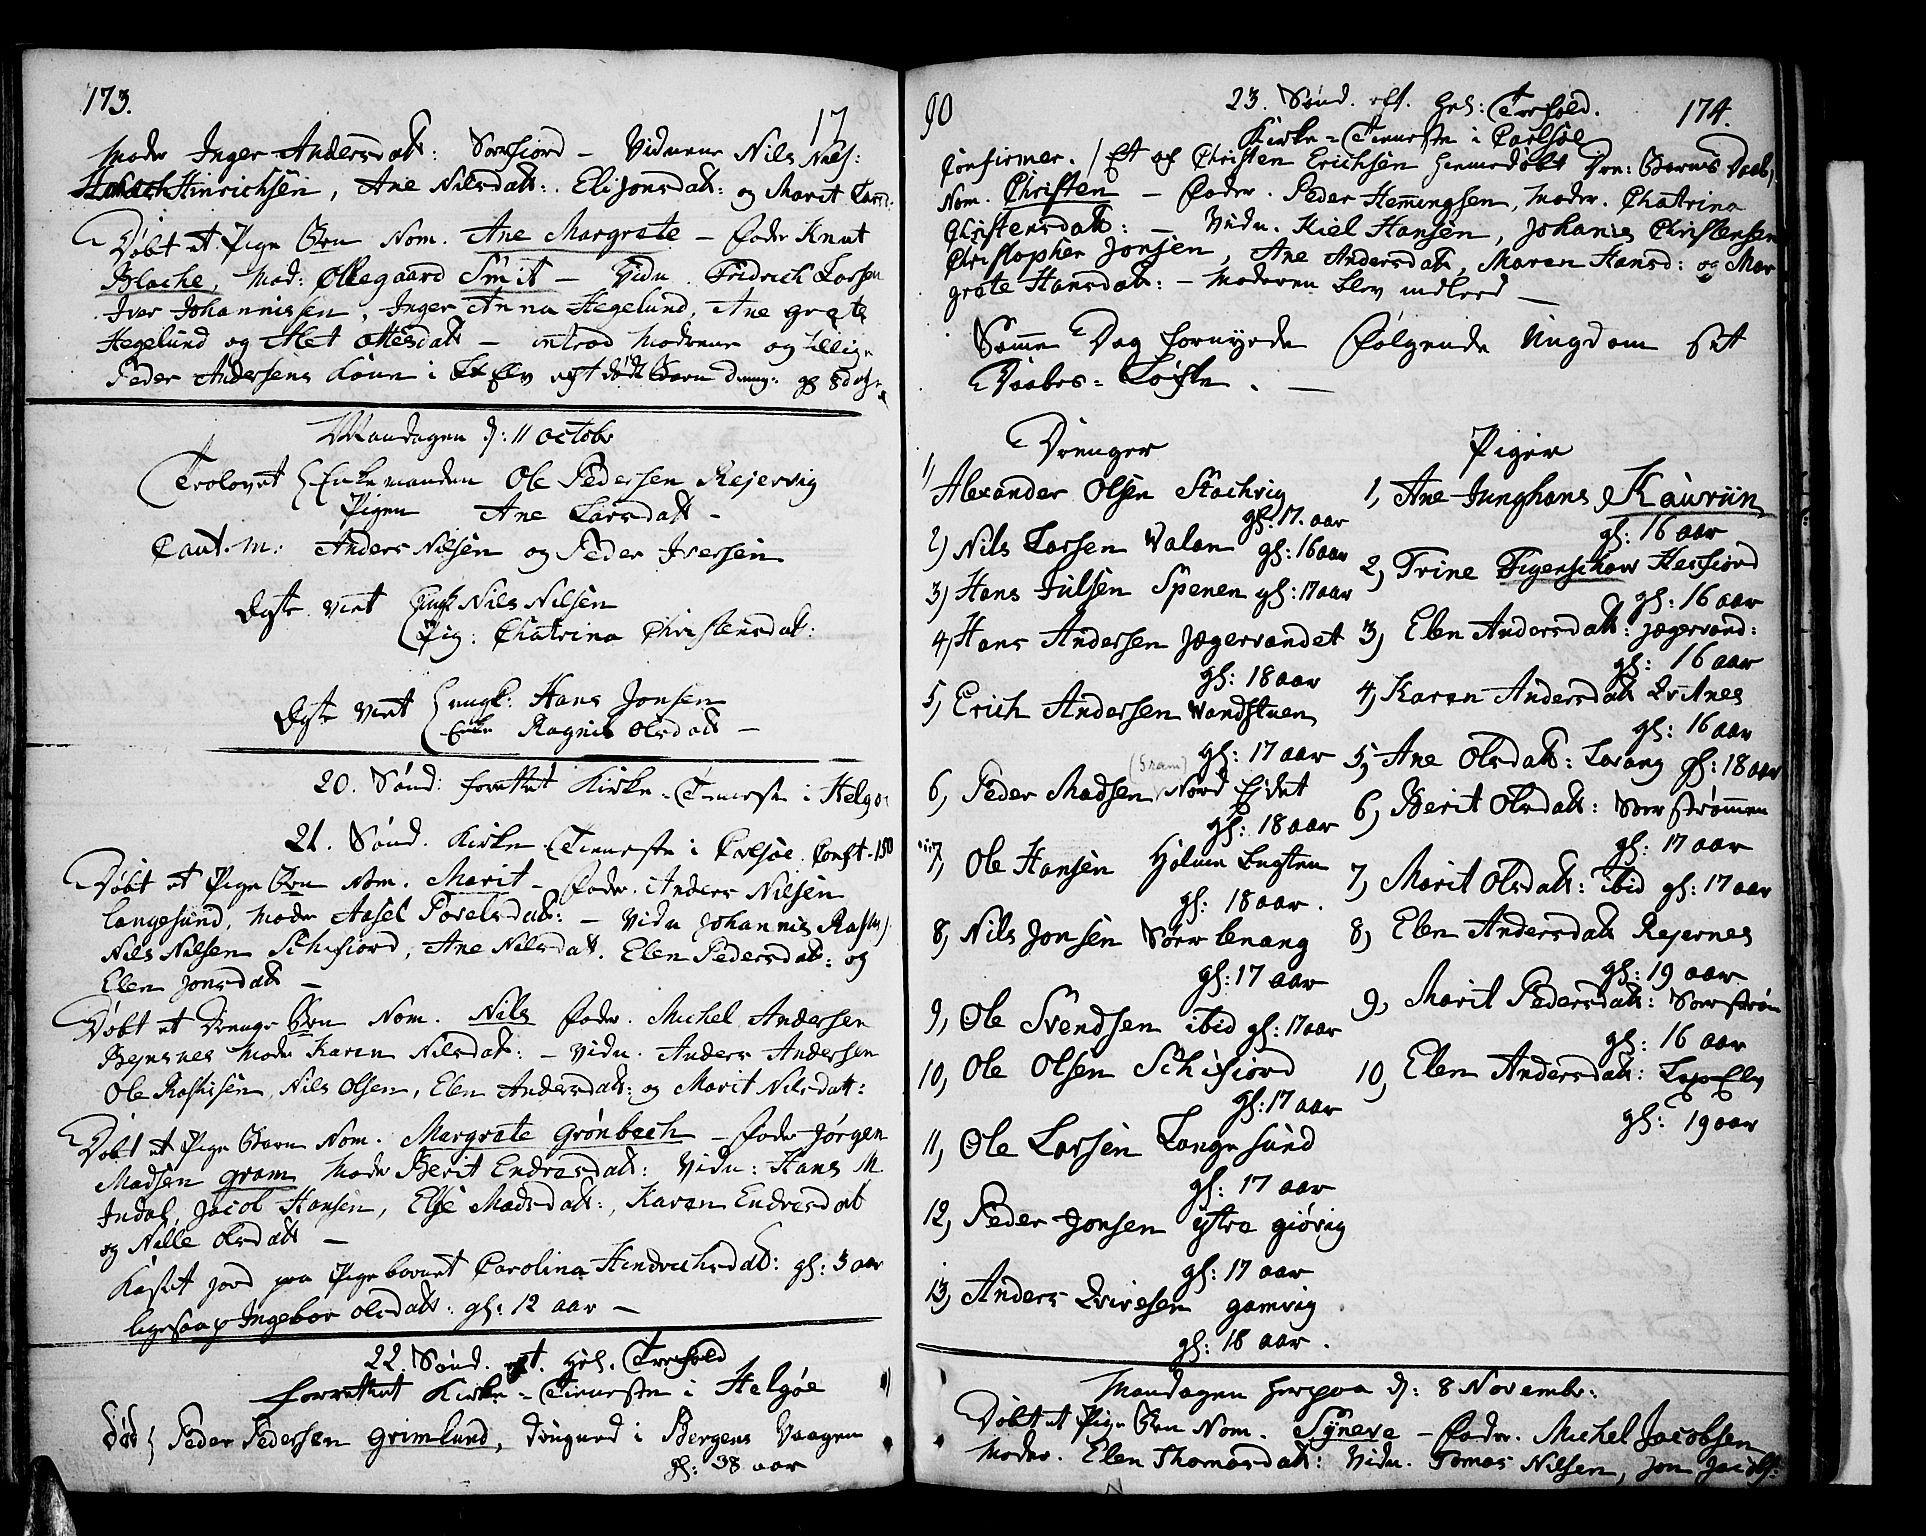 173.
17
Moder Inger Andersdatt: Sørfiord - Vidnerne Nils Niels:
Hinrichsen, Ane Nilsdatt: Eli Jonsdatt: og Marit Larsd:
Døbt et Pige Brn Nom. Ane Margrete - Fader Knut
Blache, Mod: Ollegaard Smit - Vidn. Fridrich Larsen
Iver Johannissen, Inger Anna Hegelund, Ane Grete
Hegelund og Alet Ottesdatt - introd Moderne og tillige
Peder Andersens Kone i
Mandagen d: 11 octobr
Trolovet Enkemanden Ole Pedersen Rejervig
Pigen Ane Larsdatt -
Caut. M: Anders Nilsen og Peder Iversen
Egte viet Nils Nilsen
Pig: Chatrina Christensdat:
Egte viet ungk: Hans Jonsen
Enke Ragnil Olsdatt -
20. Sønd: forrettet Kirke-Tieneste i Helgø
21. Sønd. Kirke Tieneste i Carlsøe. Conft. 150
Døbt et Pige Brn Nom. Marit - Fader. Anders Nilsen
Langesund, Moder Aasel Povelsdatt: - Vidn Johannis Rasm
Nils Nilsen Schifiord, Ane Nilsdatt. Elen Pedersdatt: og
Elen Jonsdatt -
Døbt et Drenge Brn Nom. Nils Fader. Michel Andersen
Bejnsnes Moder Karen Nilsdatt: - Vidn. Anders Andersen
Ole Raskisen, Nils Olsen, Elen Andersdatt: og Marit Nilsdatt:
Døbt et Pige Barn Nom. Margrete Grønbech - Fader Jørgen
Madsen Gram Moder Berit Endresdatt: Vidn: Hans M.
Indal, Jacob Hansen, Else Madsdatt:, Karen Endresdatt
og Nille Olsdatt -
Kastet Jord paa Pigebarnet Carolina Hendrichsdatt: gl: 3 aar
ligesaa p Ingebor Olsdatt: gl: 12 aar -
22. Sønd. eft. Hel. Trefold
forrettet Kirke-Tieneste i Helgøe
død Peder Pedersen Grimlund, drugned i Bergens Vaagen
gl: 38 aar
90
23. Sønd. eft. Hel: Trefold. 174.
Kirke-Tieneste i Carlsøe
Confirmer. / Et af Christen Erichsen hiemedøbt Dren: Barns Daab
Nom. Christen - Fader. Peder Hemingsen, Moder. Chatrina
Christensdatt: - Vidn. Kiel Hansen, Johanis Christensen
Christopher Jonsen, Ane Andersdatt, Maren Hansd: og Mar
grete Hansdatt: - Moderen blev indled -
Samme Dag fornyede følgende Ungdom sit
Daabes-Løfte. -
Drenger
1) Alexander Olsen Stachvig
gl: 17. aar
2) Nils Larsen Valan gl: 16 aar
3) Hans Julsen Spenen gl: 17 aar
4) Hans Andersen Jægervandet
gl: 18 aar
5, Erich Andersen Vandstuen
gl: 17 aar
(Gram)
6, Peder Madsen Nord Eidet
gl: 18 aar
7, Ole Hansen Holme Lugsten
gl: 18 aar.
8, Nils Jonsen Sørlenang
gl: 17 aar
9, Ole Svendsen ibid gl: 17 aar
10, Ole Olsen Schifiord
gl: 17 aar
11, Ole Larsen Langesund
gl: 17 aar
12, Peder Jonsen ytre Giøvig
gl: 17 aar
13, Anders Qvivesen Gamvig
gl: 18 aar.
Piger
1, Ane Junghans Kauriin
gl: 16 aar
2, Trine Figenschow Hessiord
gl: 16 aar
3, Elen Andersdatt: Jægervand:
gl: 16 aar
4, Karen Andersdatt Qvitnes
gl: 16 aar
5, Ane Olsdatt: Lavang gl: 18 aar
6, Berit Olsdatt: Sørstrømmen
gl: 17 aar
7, Marit Olsdatt: ibid gl: 17 aar
8, Elen Andersdatt Rejernes
gl: 19 aar
9, Marit Pedersdatt: Sørstrøm
gl: 16 aar
10, Elen Andersdatt: LaxElv
gl: 19 aar
Mandagen herpaa d: 8 Novembr:
Døbt et Pige Brn Nom. Syneve - Fader. Michel Jacobsen
Moder. Elen Thomasdatt: Vidn. Tomas Nilsen, Jon Jacobs: